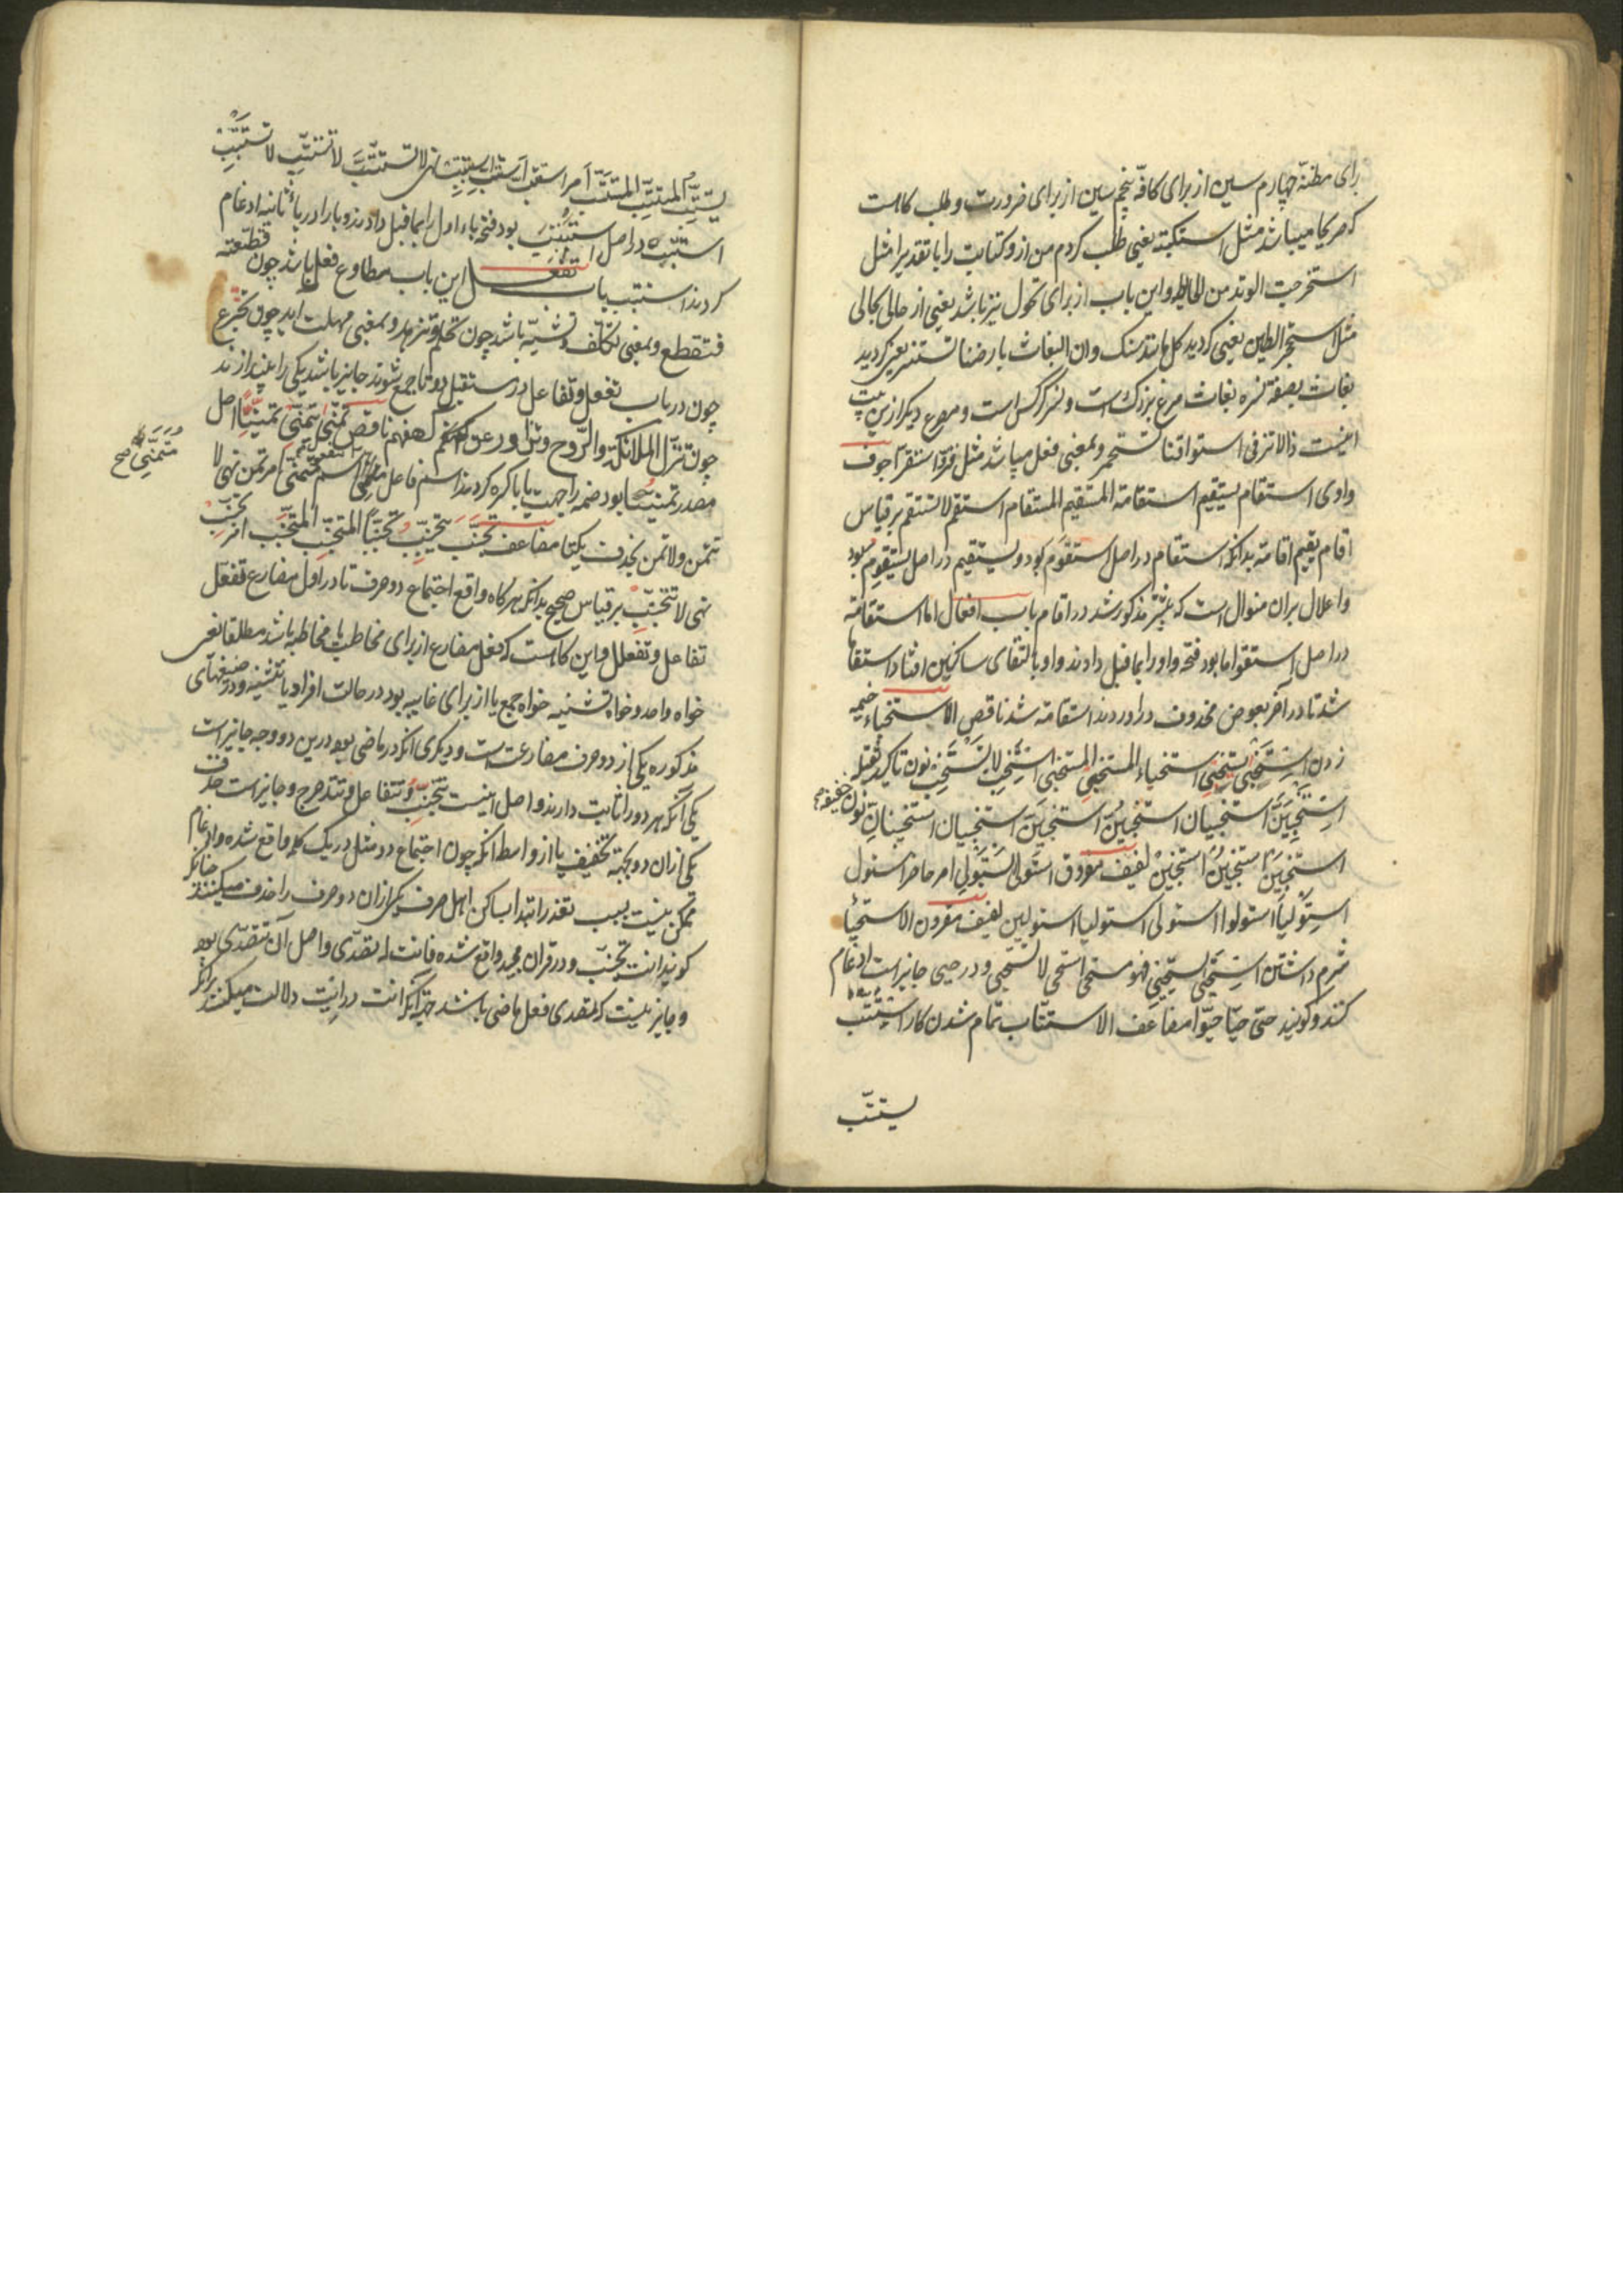 برای مظنه چهارم سین از برای کافه پنجم سین از برای ضرورت و طلب کاست
که صریحا میباشد مثل استکتبته یعنی طلب کردم من ازو کتابت را یا تقدیرا مثل
استخرجت الوتد من الحایط و این باب از برای تحول نیز باشد یعنی از حالی بحالی
مثل استحجر الطین یعنی کردید کل مانند سنک و ان البغاث بارضنا تستنسر یعنی کردید
بغاث بصفة نسره بغاث مرغ بزرک است و نسر کرکس است و مصرع دیکر ازین بیت
اینست و بمعنی فعل میباشد مثل قر و استقر اجوف
واوی استقام یستقیم استقامة المستقیم المستقام استقم لا تستقم بر قیاس
اقام یقیم اقامة بدانکه استقام در اصل استقوم بود و یستقیم در اصل یستقوم بود
و اعلال بران منوال است که پیشتر مذکور شد در اقام باب افعال اما استقامة
در اصل استقواما بود فتحه واو را بماقبل دادند واو بالتقای ساکنین افتاد استقاما
شد تا در آخر بعوض محذوف در اوردند استقامة شد ناقص الاستخباء خیمه
زدن استخبی یستخبی استخباء المستخبی المستخبی استخب لا تستخب نون تاکید ثقیله
استخبین استخبیان استخبن استخبن استخبیان استخبینان نون خفیفه
استخبین استخبن استخبن لفیف مفروق استولی یستولی امر حاضر استول
استولیا استولوا استولی استولیا استولین لفیف مقرون الاستحیا
شرم داشتن استحیی یستحیی فهو مستحی استحی لا تستحی و در حیی جایز است ادغام
کنند و کویند حی حیا حیوا مضاعف الاستتباب تمام شدن کار استتب
یستتب
یستتب المستتب المستتب امر استتب استتب استتبب نهی لا تستتب لا تستتب لا تستتبب
استتب در اصل استتبب بود فتحه باء اول را بماقبل دادند و با را در باء ثانیه ادغام
کردند استتب باب تفعل این باب مطاوع فعل باشد چون قطعته
فتقطع و بمعنی تکلف و تشبه باشد چون تحلم و تزهد و بمعنی مهلت اید چون تجرع
چون در باب تفعل و تفاعل در مستقبل دو تا جمع شوند جایز باشد یکی را بیندازند
چون تنزل الملائکة والروح ناقص تمنی یتمنی تمنیا اصل
مصدر تمنیا بود ضمه را جهت یا با کسره کردند اسم فاعل متمنی اسم مفعول متمنی امر تمن نهی لا
متمنی صح
تتمن و لا تمن بحذف یکتا مضاعف تحبب یتحبب تحببا المتحبب المتحبب امر تحبب
نهی لا تتحبب بر قیاس صحیح بدانکه هر کاه واقع اجتماع دو حرف تا در اول مضارع تفعل
تفاعل و تفعلل و این کاست که فعل مضارع از برای مخاطب یا مخاطبه باشد مطلقا یعنی
خواه واحد و خواه تثنیه خواه جمع یا از برای غایبه بود در حالت افراد یا تثنیه و در صیغهای
مذکوره یکی از دو حرف مضارعت است و دیکری انکه در ماضی بود درین دو وجه جایز است
یکی آنکه هر دو را ثابت دارند و اصل اینست تتحبب و تتفاعل و تتدحرج و جایز است حذف
یکی ازان دو بجهة تخفیف یا از واسطه انکه چون اجتماع دو مثل در یک کلمه واقع شده و ادغام
ممکن نیست بسبب تعذر ابتدا بساکن اهل صرف یکی ازان دو حرف را حذف میکنند چنانکه
کویند انت تحبب و در قران مجید واقع شده فانت له تصدی و اصل آن تتصدی بود
و جایز نیست که تصدی فعل ماضی باشد جهة آنکه انت در انیت دلالت میکند برانکه